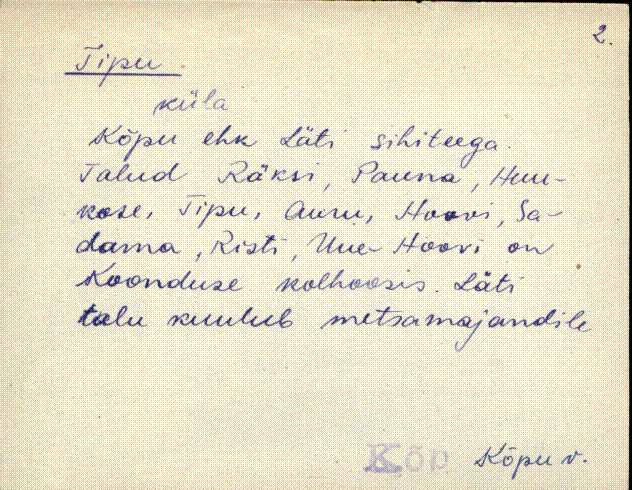 2.
Tipu.
küla
Kõpu ehk Läti sihiteega.
Talud Räksi, Pauna, Huu-
kose, Tipu, Auru, Hoovi, Sa-
dama, Risti, Uue-Hoovi on
Koonduse kolhoosis. Läti
talu kuulub metsamajandile
Kõp Kõpu v.